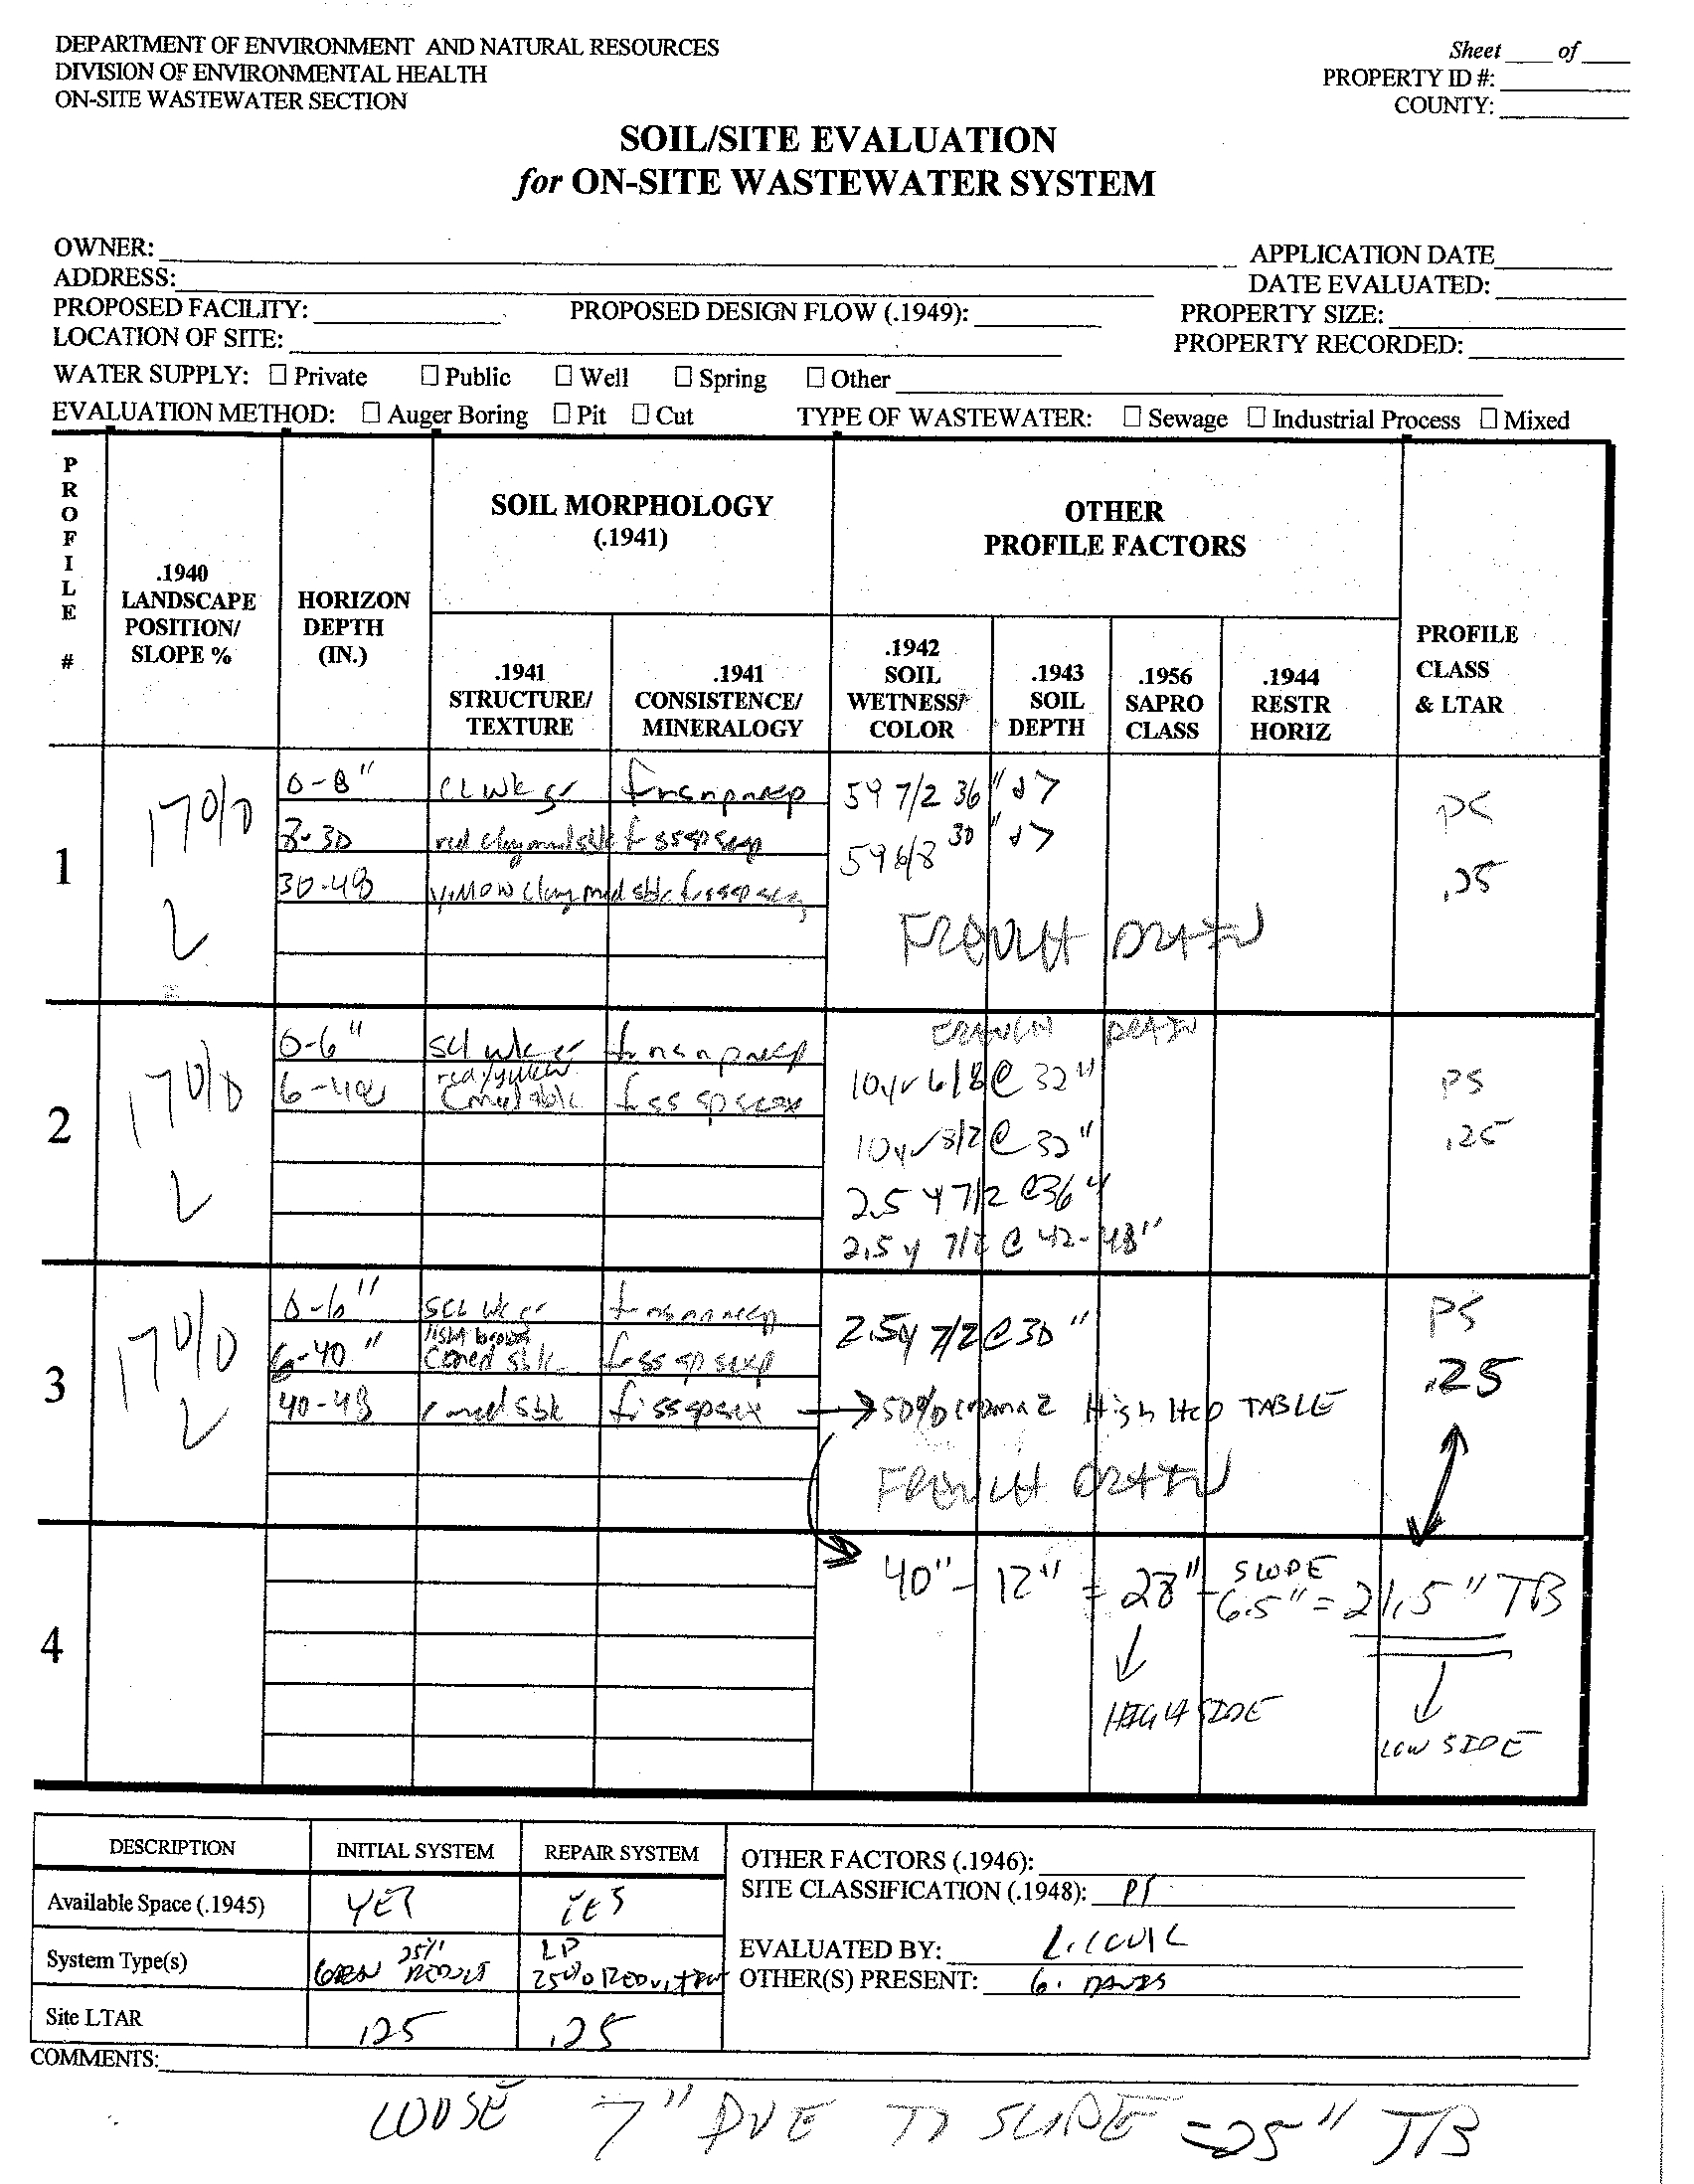 DEPARTMENT OF ENVIRONMENT AND NATURAL RESOURCES
DIVISION OF ENVIRONMENTAL HEALTH
ON-SITE WASTEWATER SECTION
Sheet ____ of ____
PROPERTY ID #:
COUNTY:
SOIL/SITE EVALUATION
for ON-SITE WASTEWATER SYSTEM
OWNER:
APPLICATION DATE
ADDRESS:
DATE EVALUATED:
PROPOSED FACILITY: PROPOSED DESIGN FLOW (.1949): PROPERTY SIZE:
LOCATION OF SITE: PROPERTY RECORDED:
WATER SUPPLY: ☐ Private ☐ Public ☐ Well ☐ Spring ☐ Other
EVALUATION METHOD: ☐ Auger Boring ☐ Pit ☐ Cut TYPE OF WASTEWATER: ☐ Sewage ☐ Industrial Process ☐ Mixed
PROFILE #
.1940 LANDSCAPE POSITION/ SLOPE %
HORIZON DEPTH (IN.)
SOIL MORPHOLOGY (.1941)
OTHER PROFILE FACTORS
.1941 STRUCTURE/ TEXTURE
.1941 CONSISTENCE/ MINERALOGY
.1942 SOIL WETNESS/ COLOR
.1943 SOIL DEPTH
.1956 SAPRO CLASS
.1944 RESTR HORIZ
PROFILE CLASS & LTAR
1
17%
L
0-8" CL wk gr
8-30 red clay med sbk
30-48 yellow clay med sbk
5Y 7/2 36"
5Y 6/8 30"
FRENCH DRAIN
PS
.25
2
17%
L
0-6" SCL wk gr
6-48 red/yellow C med sbk
FRENCH DRAIN
10yr 6/8 @ 32"
10yr 8/2 @ 32"
2.5 Y 7/2 @ 36"
2.5 y 7/2 @ 42-48"
PS
.25
3
17%
L
0-6" SCL wk gr
6-40" light brown C med sbk
40-48 C med sbk
2.5y 7/2 @ 30"
50% chroma 2 High H2O TABLE
FRENCH DRAIN
PS
.25
4
40" - 12" = 28" - SLOPE 6.5" = 21.5" TB
HIGH SIDE
LOW SIDE
DESCRIPTION INITIAL SYSTEM REPAIR SYSTEM
Available Space (.1945) YES YES
System Type(s) 25% LP 25%
Site LTAR .25 .25
OTHER FACTORS (.1946):
SITE CLASSIFICATION (.1948): PS
EVALUATED BY:
OTHER(S) PRESENT: G.
COMMENTS:
LOOSE 7" DUE TO SLOPE = 25" TB